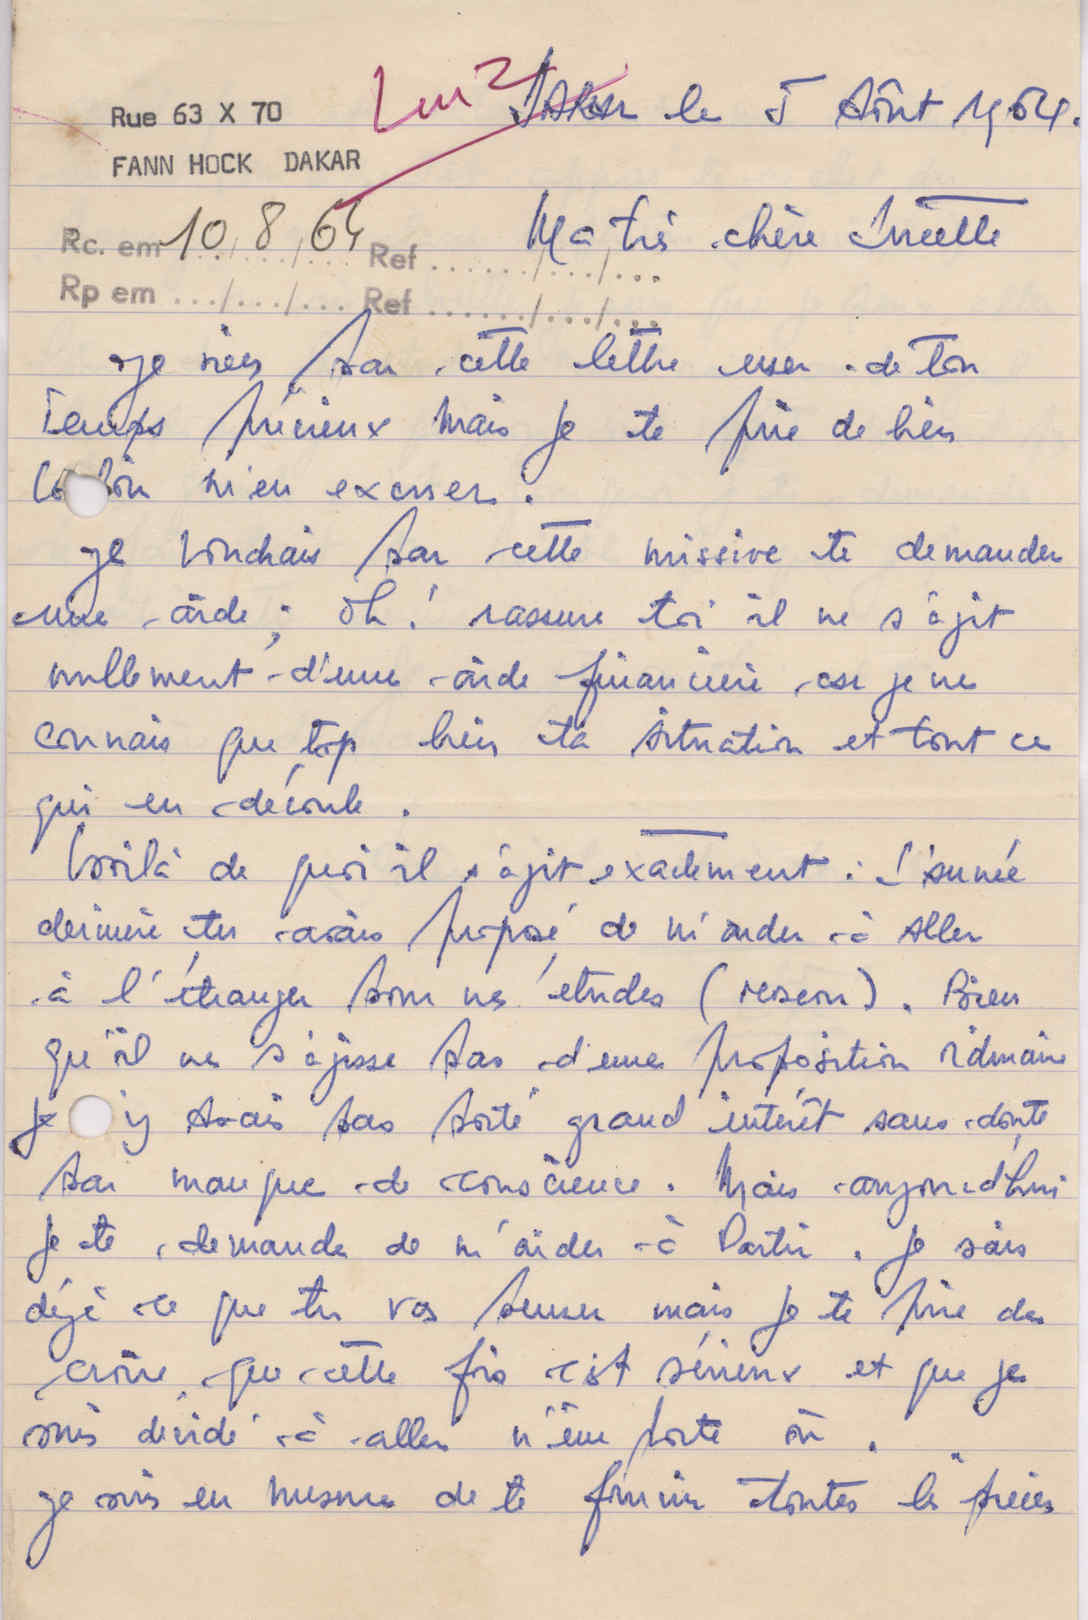 Rue 63 X 70
FANN HOCK DAKAR
Dakar le 5 Août 1964.
Rc. em 10/8/64 Ref ....../.../...
Rp em .../.../... Ref ....../.../...
Ma très chère
Je viens par cette lettre user de ton
temps précieux mais je te prie de bien
m'en excuser.
Je voudrais par cette missive te demander
une aide ; oh ! rassure toi il ne s'agit
nullement d'une aide financière car je ne
connais que trop bien ta situation et tout ce
qui en découle.
Voilà de quoi il s'agit exactement : L'année
dernière tu avais proposé de m'aider à aller
à l'étranger pour mes études (). Bien
qu'il ne s'agisse pas d'une proposition
Je n'y avais pas porté grand intérêt sans doute
par manque de conscience. Mais aujourd'hui
Je te demande de m'aider à Partir. Je sais
déjà ce que tu vas penser mais je te prie de
croire que cette fois c'est sérieux et que je
suis décidé à aller n'importe où.
Je suis en mesure de te fournir toutes les pièces